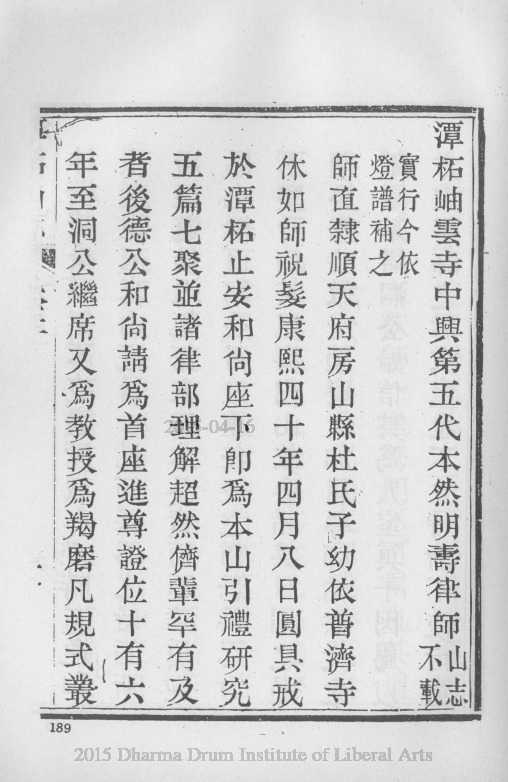 潭柘岫雲寺中興第五代本然明壽律師山志不載
實行今依燈譜補之
師直隸順天府房山縣杜氏子幼依普濟寺
休如師祝髮康熙四十年四月八日圓具戒
於潭柘止安和尙座下卽爲本山引禮硏究
五篇七聚並諸律部理解超然儕輩罕有及
者後德公和尙請爲首座進尊證位十有六
年至洞公繼席又爲教授爲羯磨凡規式叢
189
2015 Dharma Drum Institute of Liberal Arts